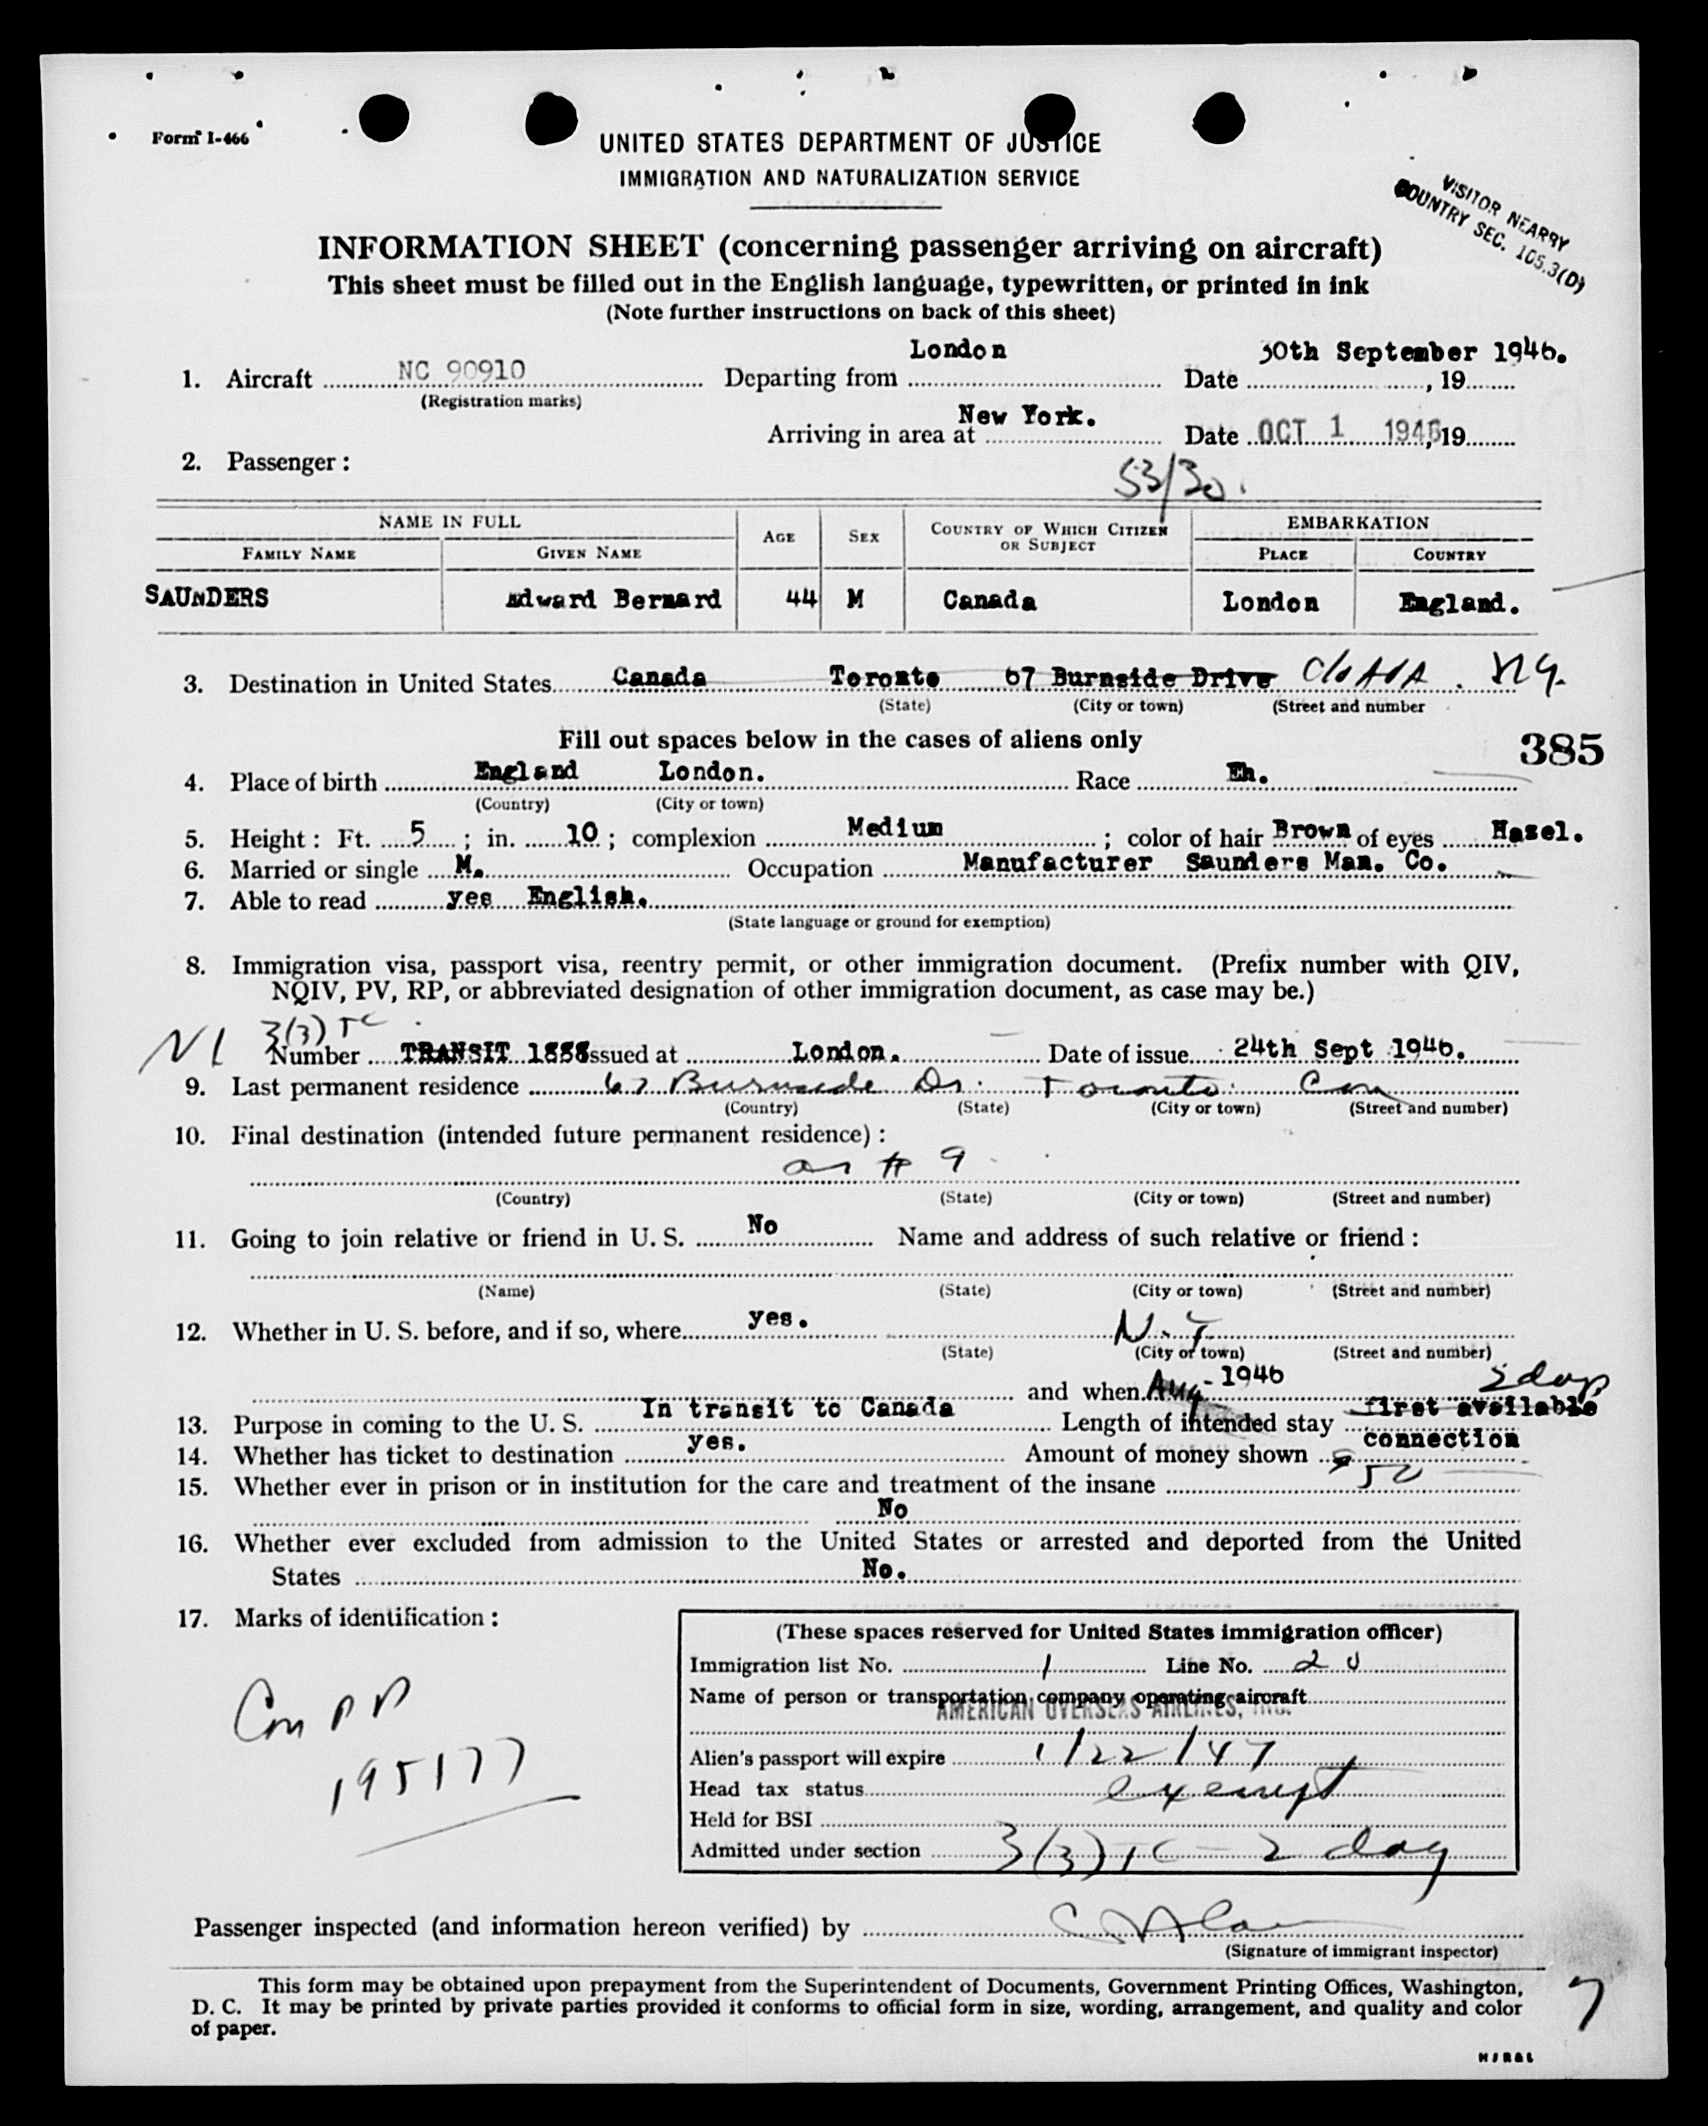 Form I-466
UNITED STATES DEPARTMENT OF JUSTICE
IMMIGRATION AND NATURALIZATION SERVICE
VISITOR NEARBY
COUNTRY SEC. 105.3(D)
INFORMATION SHEET (concerning passenger arriving on aircraft)
This sheet must be filled out in the English language, typewritten, or printed in ink
(Note further instructions on back of this sheet)
1. Aircraft NC 90910 Departing from London Date 30th September 1946. , 19
(Registration marks)
Arriving in area at New York. Date OCT 1 1946, 19
2. Passenger :
53/30.
NAME IN FULL AGE SEX COUNTRY OF WHICH CITIZEN OR SUBJECT EMBARKATION
FAMILY NAME GIVEN NAME PLACE COUNTRY
SAUNDERS Edward Bernard 44 M Canada London England.
3. Destination in United States Canada Toronto 67 Burnside Drive c/o AOA. NY.
(State) (City or town) (Street and number
Fill out spaces below in the cases of aliens only
385
4. Place of birth England London. Race Eh.
(Country) (City or town)
5. Height : Ft. 5 ; in. 10 ; complexion Medium ; color of hair Brown of eyes Hazel.
6. Married or single M. Occupation Manufacturer Saunders Man. Co.
7. Able to read yes English.
(State language or ground for exemption)
8. Immigration visa, passport visa, reentry permit, or other immigration document. (Prefix number with QIV,
NQIV, PV, RP, or abbreviated designation of other immigration document, as case may be.)
3(3) TC
Number TRANSIT 1888 issued at London. Date of issue 24th Sept 1946.
9. Last permanent residence 67 Burnside Dr. Toronto Can
(Country) (State) (City or town) (Street and number)
10. Final destination (intended future permanent residence) :
as # 9
(Country) (State) (City or town) (Street and number)
11. Going to join relative or friend in U. S. No Name and address of such relative or friend :
(Name) (State) (City or town) (Street and number)
12. Whether in U. S. before, and if so, where yes. N. Y.
(State) (City or town) (Street and number)
and when Aug- 1946
2 days
13. Purpose in coming to the U. S. In transit to Canada Length of intended stay first available
connection
14. Whether has ticket to destination yes. Amount of money shown $ 50
15. Whether ever in prison or in institution for the care and treatment of the insane
No
16. Whether ever excluded from admission to the United States or arrested and deported from the United
States No.
17. Marks of identification :
Can PP
195177
(These spaces reserved for United States immigration officer)
Immigration list No. 1 Line No. 20
Name of person or transportation company operating aircraft
AMERICAN OVERSEAS AIRLINES, INC.
Alien's passport will expire 1/22/47
Head tax status exempt
Held for BSI
Admitted under section 3(3) TC - 2 day
Passenger inspected (and information hereon verified) by
(Signature of immigrant inspector)
This form may be obtained upon prepayment from the Superintendent of Documents, Government Printing Offices, Washington,
D. C. It may be printed by private parties provided it conforms to official form in size, wording, arrangement, and quality and color
of paper.
7